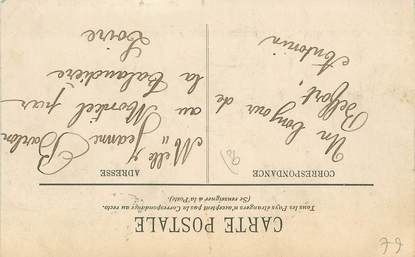 CARTE POSTALE
Tous les Pays étrangers n'acceptent pas la Correspondance au recto.
(Se renseigner à la Poste).
CORRESPONDANCE
Un bonjour de
Belfort,
Antonin
ADRESSE
Melle Jeanne Barlon
au Montcel par
la Talaudière
Loire